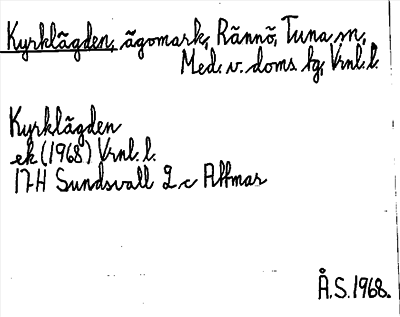 Kyrklägden, ägomark, Rännö, Tuna sn,
Med. v. doms. hg, Vrnl. l.
Kyrklägden
ek (1968) Vrnl. l.
17H Sundsvall 2 c Attmar
Å.S. 1968.